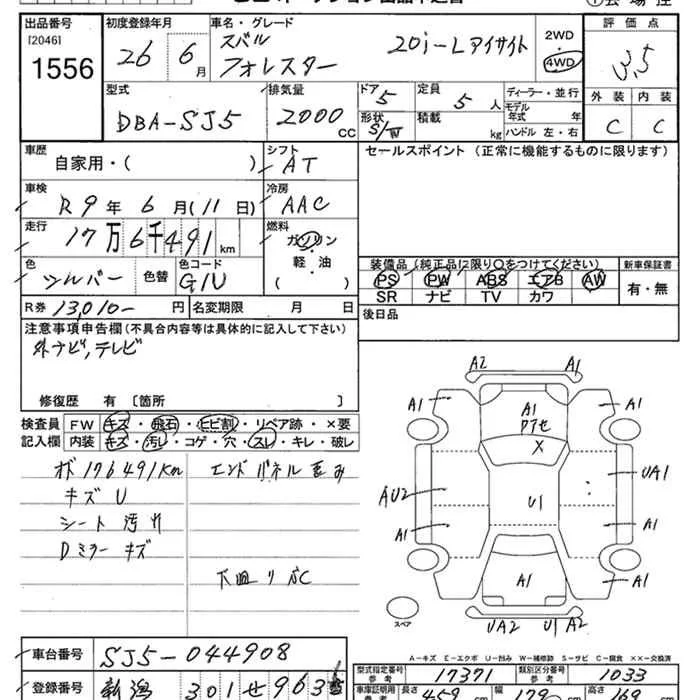 出品番号 初度登録年月 車名・グレード 評価点
[2046] 1556
26 6月
スバル フォレスター
20i-Lアイサイト
2WD 4WD
3.5
外装 内装
C C
型式 排気量 ドア 定員 ディーラー・並行
DBA-SJ5 2000 CC 5 5人
形状 積載 kg モデル年式 年
ハンドル 左・右
車歴 シフト セールスポイント (正常に機能するものに限ります)
自家用・( ) AT
車検 冷房
R9年 6月(11日) AAC
走行 燃料
17万6千491km ガソリン
軽・油
( )
色 色替 色コード
シルバー G1U
装備品 (純正品に限り○をつけてください) 新車保証書
PS PW ABS エアB AW 有・無
SR ナビ TV カワ
R券 13,010- 円 名変期限 月 日 後日品
注意事項申告欄(不具合内容等は具体的に記入して下さい)
外ナビ,テレビ
修復歴 有 〔箇所 〕
検査員 FW キズ・飛石・ヒビ割・リペア跡・×要
記入欄 内装 キズ・汚レ・コゲ・穴・スレ・キレ・破レ
オド176491Km エンドパネル歪み
キズ U
シート 汚れ
Dミラー キズ
下廻りサビC
A2 A1
A1 A1 A1
アアセ
X
UA1
AU2 U1
A1 A1
A1 A1
UA2 U1 A2
スペア
A-キズ E-エクボ U-凹み W-補修跡 S-サビ C-腐食 ××-交換済
車台番号 SJ5-044908
型式指定番号 参考 17371 類別区分番号 参考 1033
登録番号 新潟 301 せ 963
車庫証明用 参考 長さ 459 cm 幅 179 cm 高さ 169